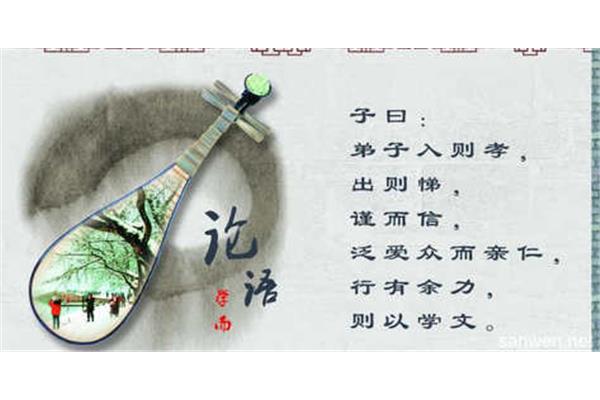 论语
学而
子曰：
弟子入则孝，
出则悌，
谨而信，
泛爱众而亲仁，
行有余力，
则以学文。
sanwen.net